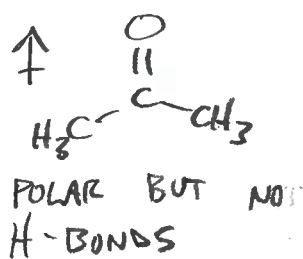 O
C
H3C CH3
POLAR BUT NO
H-BONDS